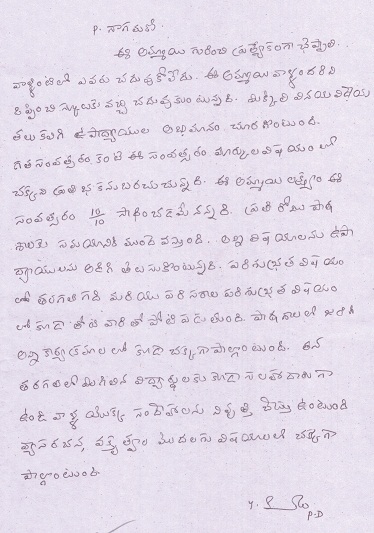 P. నాగమణి.
ఈ అమ్మాయి గురించి ప్రత్యేకంగా చెప్పాలి.
వాళ్ళింటిలో ఎవరు చదువుకోలేదు. ఈ అమ్మాయి వాళ్ళందరిని
ఒప్పించి స్కూలుకు వచ్చి చదువుకుంటున్నది. మిక్కిలి వినయ విధేయ
తలు కలిగి ఉపాధ్యాయుల అభిమానం చూరగొంటుంది.
గత సంవత్సరం కంటే ఈ సంవత్సరం మార్కుల విషయంలో
చక్కని ప్రతిభ కనబరచుచున్నది. ఈ అమ్మాయి లక్ష్యం ఈ
సంవత్సరం 10/10 సాధించడమేనన్నది. ప్రతి రోజు పాఠ
శాలకు సమయానికి ముందే వస్తుంది. అన్ని విషయాలను ఉపా
ధ్యాయులను అడిగి తెలుసుకొంటున్నది. పరిశుభ్రత విషయం
లో తరగతి గది మరియు పరిసరాల పరిశుభ్రత విషయం
లో కూడా తోటి వారితో పోటీ పడుతుంది. పాఠశాలలో జరిగే
అన్ని కార్యక్రమాలలో కూడా చక్కగా పాల్గొంటుంది. తన
తరగతిలో మిగిలిన విద్యార్థులకు కూడా సలహాదారుగా
ఉండి వాళ్ళ యొక్క సందేహాలను నివృత్తి చేస్తూ ఉంటుంది
వ్యాసరచన, వక్తృత్వం మొదలగు విషయాలలో చక్కగా
పాల్గొంటుంది.
P.D